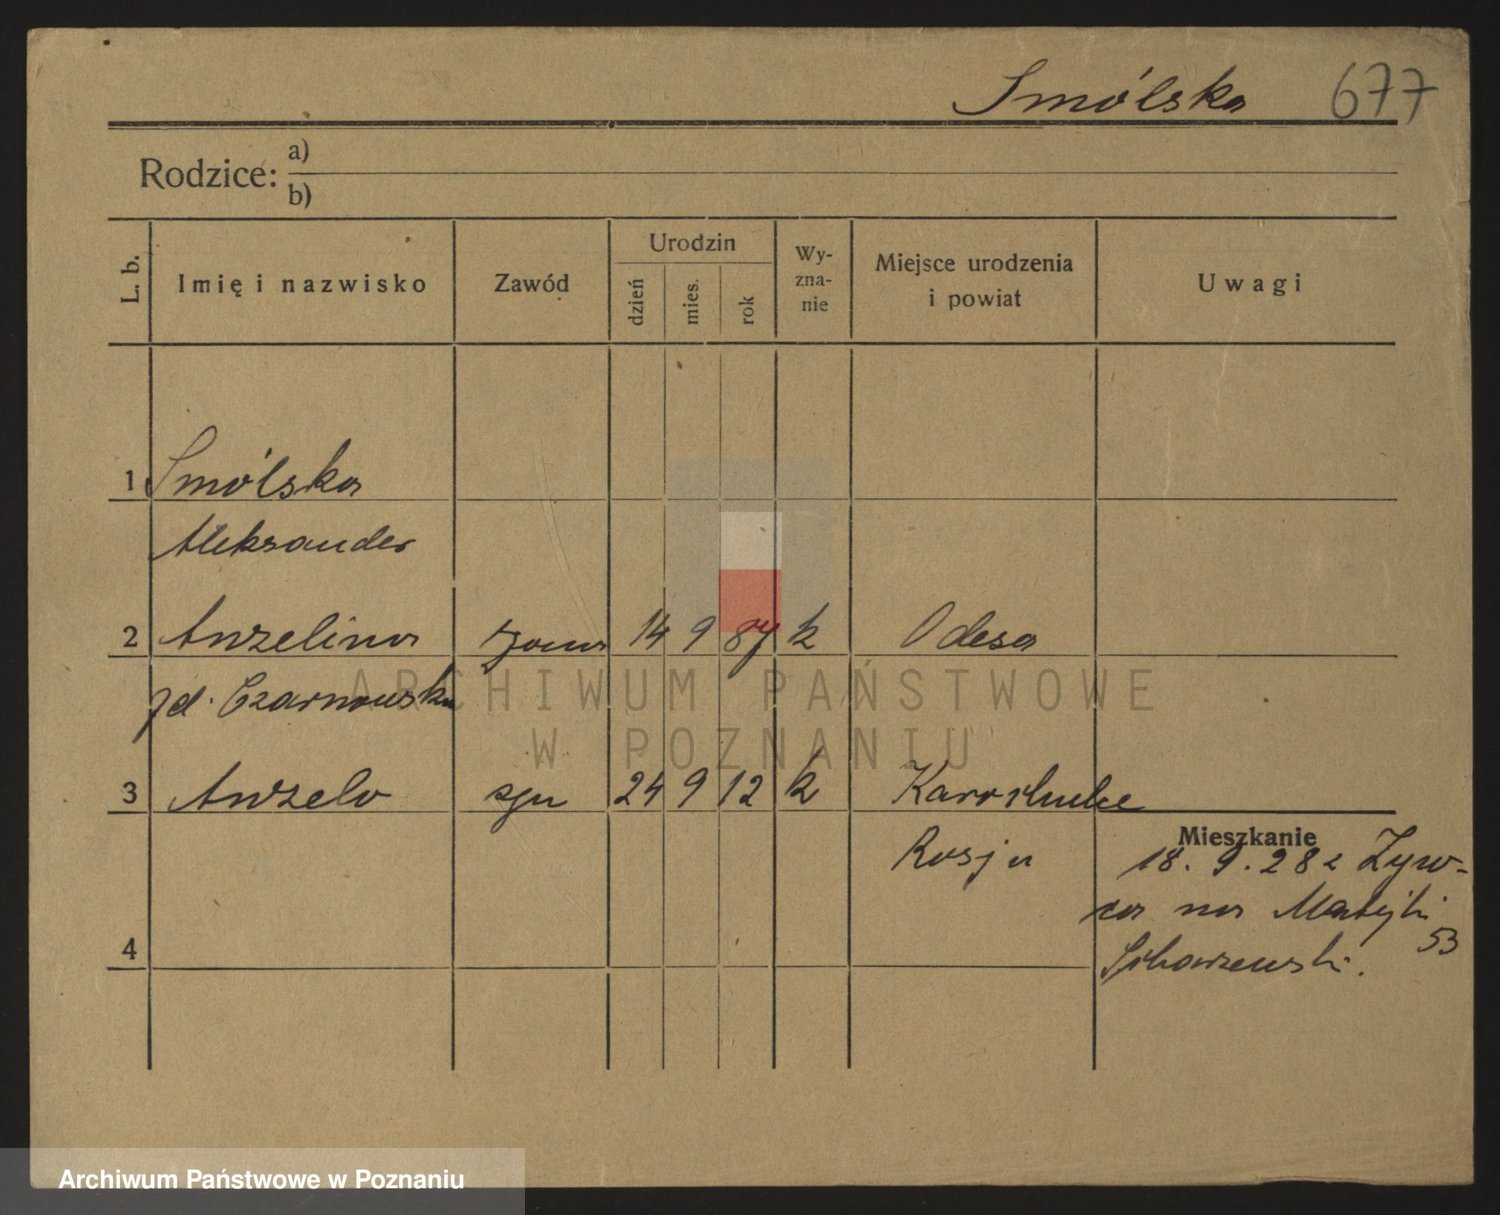 Smólska 677
Rodzice: a)
b)
L. b.
Imię i nazwisko
Zawód
Urodzin
dzień
mies.
rok
Wy-
zna-
nie
Miejsce urodzenia
i powiat
Uwagi
1 Smólska
Aleksander
2 Anzelina żona 14 9 87 k Odesa
zd. Czarnowska
3 Anzela 24 9 12 k
Rosja
Mieszkanie
18. 9. 28 z Żyw-
na Matejki
53
4
ARCHIWUM PAŃSTWOWE
W POZNANIU
Archiwum Państwowe w Poznaniu